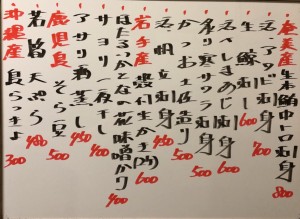 奄美産生本鮪中トロ刺身 800
活アワビ刺身 700
生鯨刺 600
活〆しまあじ刺身 600
釣り寒サワラ刺身 500
かつお土佐造り 500
活帆立刺身 450
岩手産殻付生かき 600
ほたるいかとなの花酢味噌かけ 400
サヨリ一夜干し 400
アサリ酒蒸し 450
鹿児島そら豆 500
若鮎天ぷら 480
沖縄産島らっきょ 300